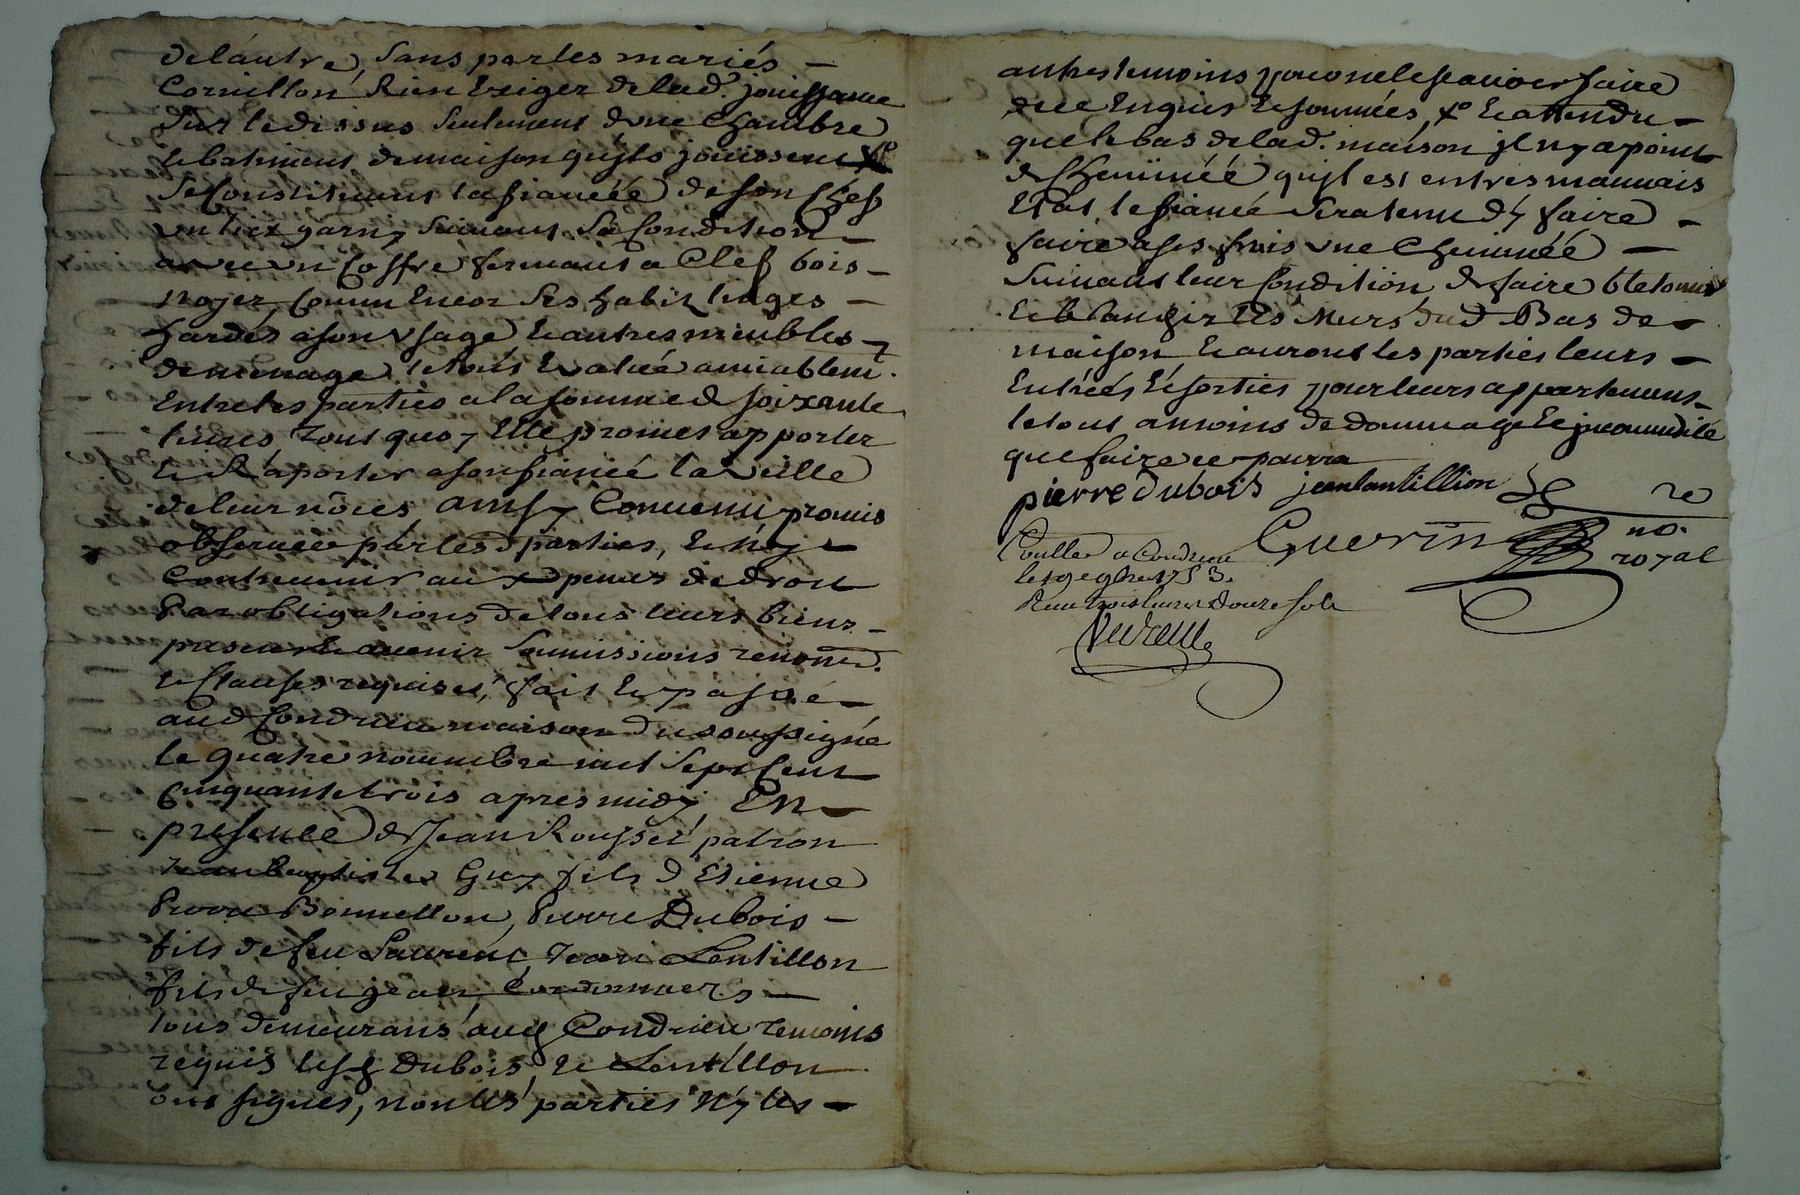 de lautre, sans par les mariés —
Cornillon Rien Exiger de lad. jouissance
Sur le dessus seulement dune Chambre
le batiment de maison quils jouissent xº
Se Constituant la fiancée de son Chef
un lict garny suivant sa Condition —
avec un Coffre fermant a Clef bois —
noyer, Comm Encor ses habitz linges —
hardes a son usage & autres meubles —
de menage le tout Evalué amiablem.
Entre les parties a la somme de soixante
livres Tout quoy Elle promet apporter
& Raporter a son fiancé la veille
de leur nôces ainsy Convenu promis
observer par les d parties, & n'y
Contrevenir aux peines de droit
Par obligations de tous leurs biens —
presents avenir soumissions renond.
& Clauses requises, fait & passé —
aud Condrieu maison du soussigné
le quatre novembre mil sept Cent
Cinquante trois apres midy, En —
presence de Jean Rousset patron
Jean Baptiste Guy fils d'Etienne
Pierre Bonnellon, Pierre Dubois —
fils de feu Laurent, Jean Lentillon
fils de feu jean Cordonniers —
tous demeurans aud Condrieu temoins
requis lesd Dubois & Lentillon
ont signés, non les parties n'y les —
autres temoins pour ne le scavoir faire
de ce Enquis & sommées, xº & attendu —
que le bas de lad. maison jl ny a point
de Cheminée quil est en tres mauvais
Etat, le fiancé sera tenu d'y faire —
faire a ses frais une Cheminée —
suivant leur Condition de faire
& blanchir les Murs dud Bas de —
maison & auront les parties leurs —
Entrées & sorties pour leurs appartemens —
le tout a moins de dommage & jncommodité
que faire ce pourra
pierre dubois jean lantillion
Guerin no. royal
Coullé a Condrieu
le 19 9bre 1753.
Reçu trois livres Douze sols